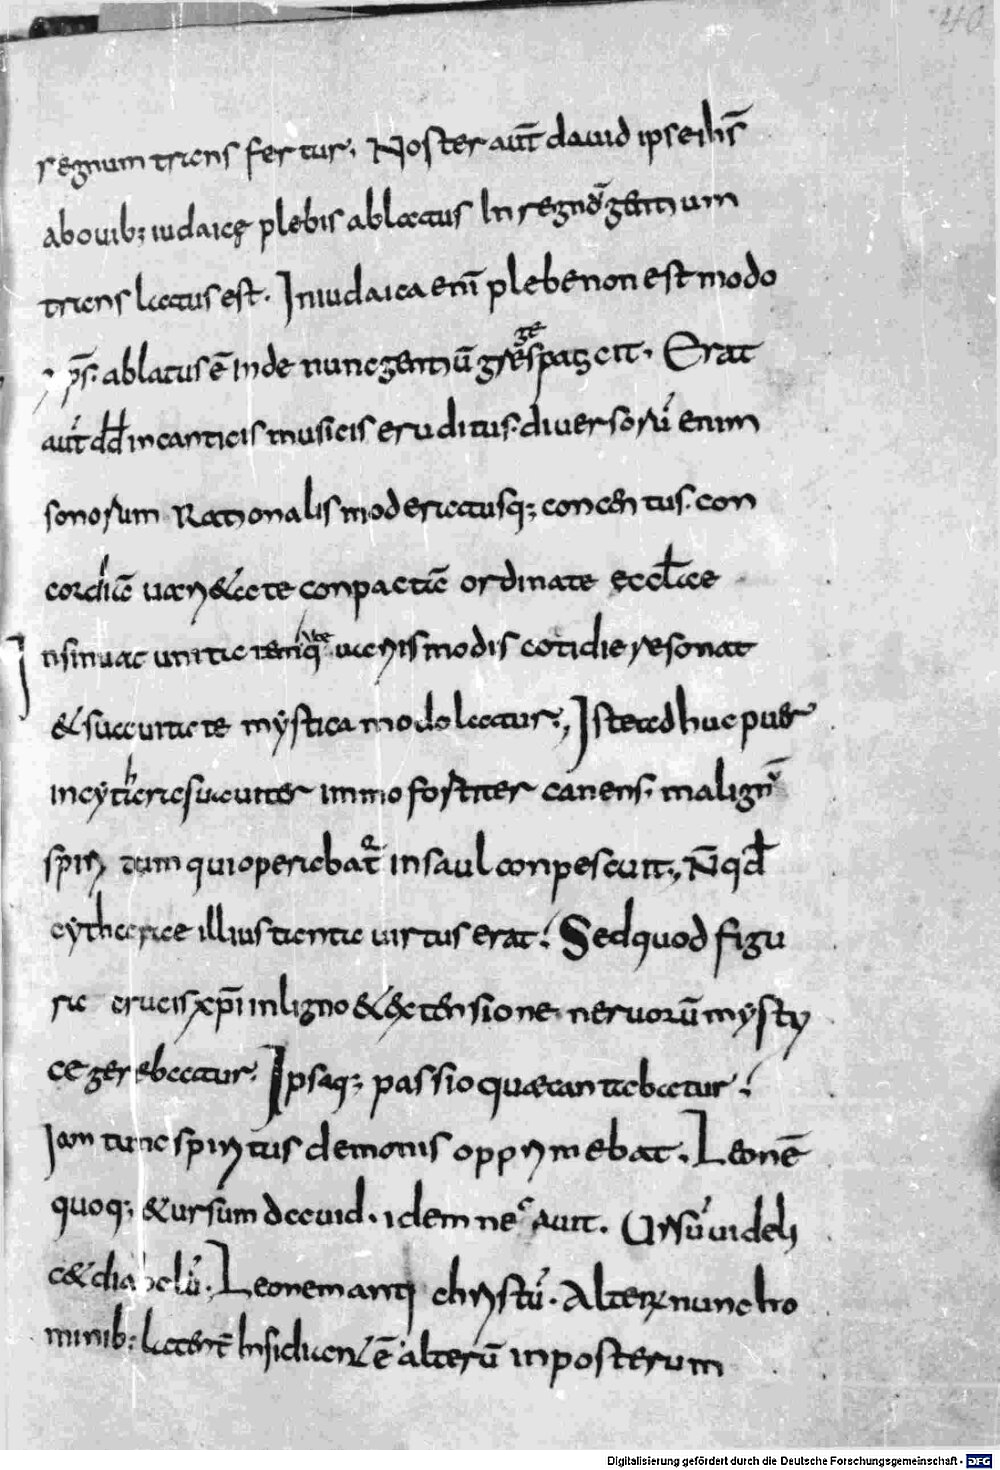 40
regnum triens fertur. Noster aut̄ dauid ipseihs̄
abouib; iudaicę plebis ablatus In regnō gentium
triens latus est. In iudaica eni̅ plebe non est modo
xp̄s. ablatus ē inde nunc gentiū greges pascit. Erat
aut̄ dd̄ in canticis musicis eruditus. diuersorū enim
sonorum Rationalis moderatusq; concentus. con
cordiā uarietate conpactā ordinate eccl̄iae
Insinuat unitatē q uariis modis cotidie resonat
& suauitate mystica modolatur., Iste adhuc puer
in cythara suauiter immo fortiter canens. malignū
spiritum qui operabat̄ in saul conpescuit., N̄ qd̄
cytharae illius tanta uirtus erat. Sed quod figu
ra crucis xp̄i in ligno & extensione neruorū mysti
ce gerebatur. Ipsaq; passio quae cantabatur.
Iam tunc spiritus demonis opprimebat. Leonē
quoq; & ursum dauid. idem necauit. Ursū uideli
c& diabolū. Leonem anti christū. Alter nunc ho
minib; latent Insidians ē alterū in posterum
Digitalisierung gefördert durch die Deutsche Forschungsgemeinschaft - DFG